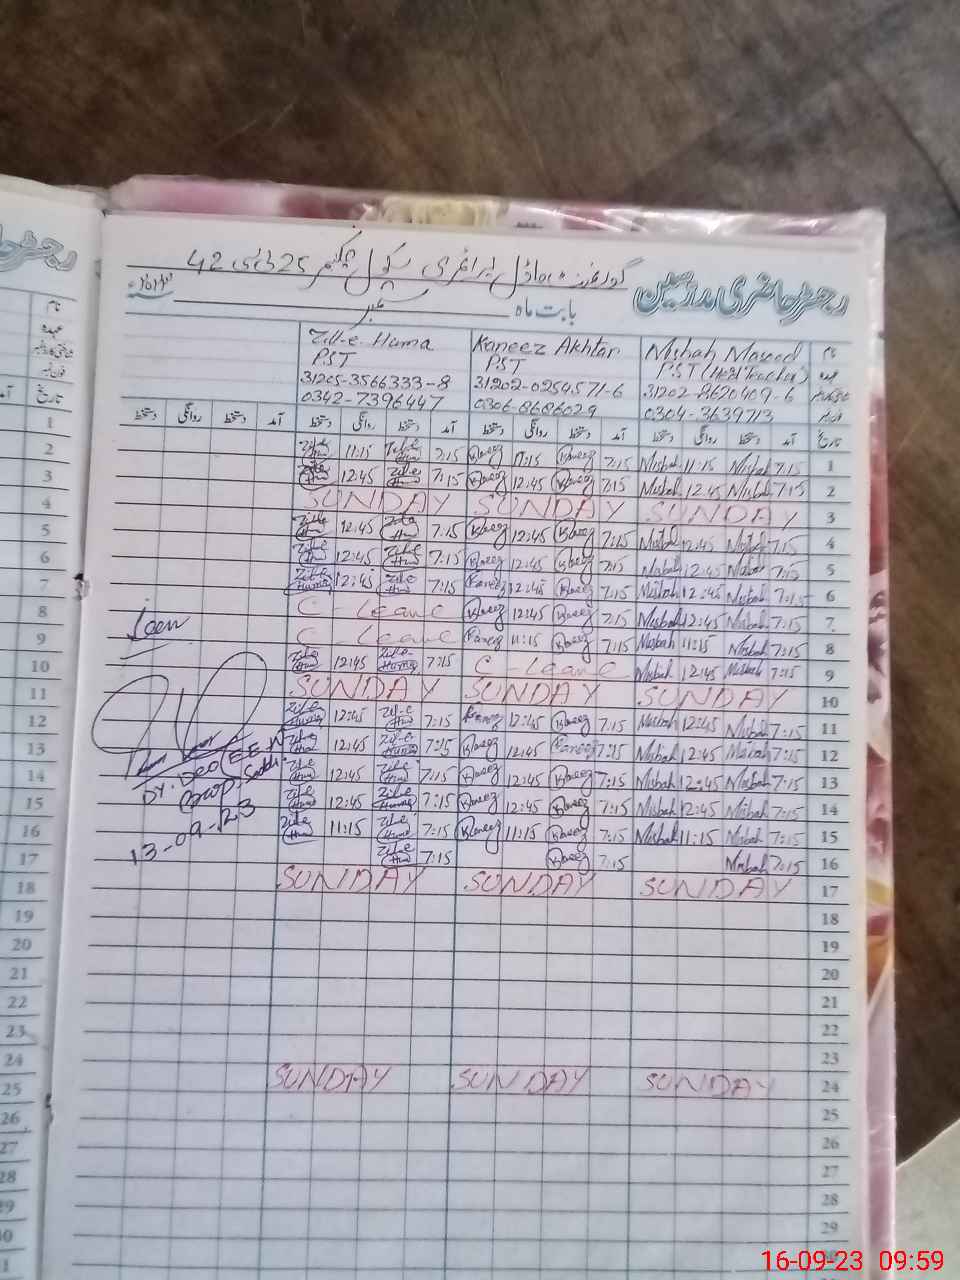 رجسٹر حاضری مدرسین
گورنمنٹ ماڈل پرائمری سکول 25 ڈی بی 42
بابت ماہ ستمبر ۲۰۲۳
نام Misbah Masood Kaneez Akhtar Zill-e-Huma
عہدہ PST (Head Teacher) PST PST
31202-8620409-6 31202-0254571-6 31205-3566333-8
0304-3639713 0306-8686029 0342-7396447
تاریخ آمد دستخط روانگی دستخط آمد دستخط روانگی دستخط آمد دستخط روانگی دستخط آمد دستخط روانگی دستخط
1 7:15 Misbah 11:15 Misbah 7:15 Kaneez 11:15 Kaneez 7:15 Zill-e Huma 11:15 Zill-e Huma
2 7:15 Misbah 12:45 Misbah 7:15 Kaneez 12:45 Kaneez 7:15 Zill-e Huma 12:45 Zill-e Huma
3 SUNDAY SUNDAY SUNDAY
4 7:15 Misbah 12:45 Misbah 7:15 Kaneez 12:45 Kaneez 7:15 Zill-e Huma 12:45 Zill-e Huma
5 7:15 Misbah 12:45 Misbah 7:15 Kaneez 12:45 Kaneez 7:15 Zill-e Huma 12:45 Zill-e Huma
6 7:15 Misbah 12:45 Misbah 7:15 Kaneez 12:45 Kaneez 7:15 Zill-e Huma 12:45 Zill-e Huma
7 7:15 Misbah 12:45 Misbah 7:15 Kaneez 12:45 Kaneez C-Leave
8 7:15 Misbah 11:15 Misbah 7:15 Kaneez 11:15 Kaneez C-Leave
9 7:15 Misbah 12:45 Misbah C-Leave 7:15 Zill-e Huma 12:45 Zill-e Huma
10 SUNDAY SUNDAY SUNDAY
11 7:15 Misbah 12:45 Misbah 7:15 Kaneez 12:45 Kaneez 7:15 Zill-e Huma 12:45 Zill-e Huma
12 7:15 Misbah 12:45 Misbah 7:15 Kaneez 12:45 Kaneez 7:15 Zill-e Huma 12:45 Zill-e Huma
13 7:15 Misbah 12:45 Misbah 7:15 Kaneez 12:45 Kaneez 7:15 Zill-e Huma 12:45 Zill-e Huma
14 7:15 Misbah 12:45 Misbah 7:15 Kaneez 12:45 Kaneez 7:15 Zill-e Huma 12:45 Zill-e Huma
15 7:15 Misbah 11:15 Misbah 7:15 Kaneez 11:15 Kaneez 7:15 Zill-e Huma 11:15 Zill-e Huma
16 7:15 Misbah 7:15 Kaneez 7:15 Zill-e Huma
17 SUNDAY SUNDAY SUNDAY
18
19
20
21
22
23
24 SUNDAY SUNDAY SUNDAY
25
26
27
28
29
30
Seen
DY. DEO (EE-W)
13-09-23
رجسٹر حا
نام
عہدہ
تاریخ
1
2
3
4
5
6
7
8
9
10
11
12
13
14
15
16
17
18
19
20
21
22
23
24
25
26
27
28
29
30
16-09-23 09:59